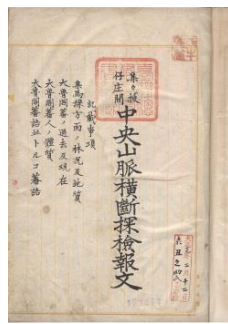 集々拔
仔庄間
中央山脈橫斷探檢報文
記載事項
方面ノ林況及地質
太魯閣蕃ノ過去及現在
太魯閣蕃人ノ體質
太魯閣蕃語並トルコ蕃語